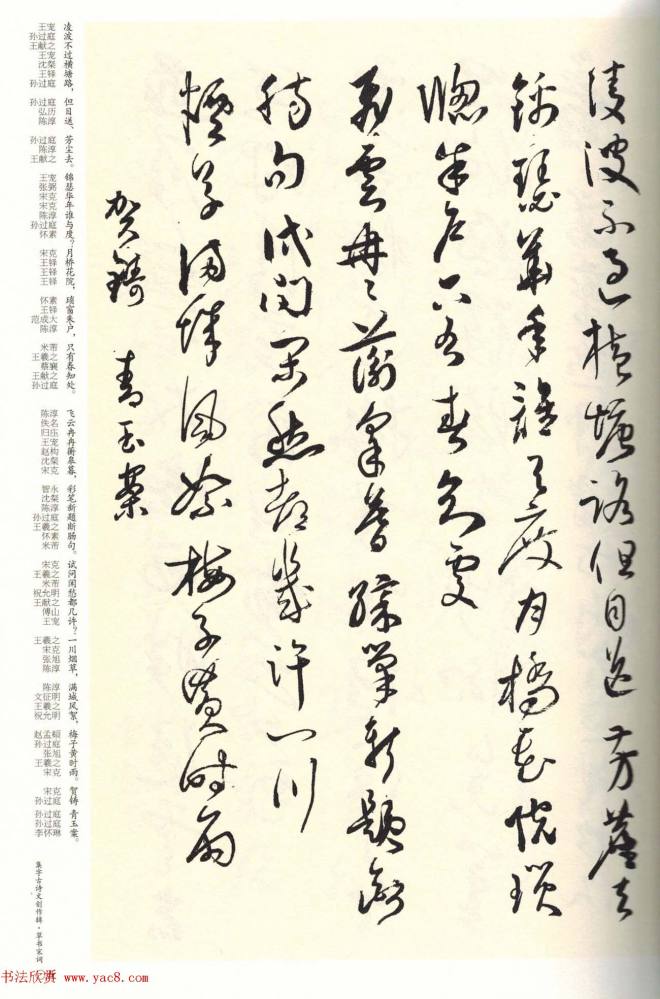 凌波不過橫塘路但目送芳塵去
錦瑟華年誰與度月橋花院瑣
窗朱戶只有春知處
飛雲冉冉蘅皋暮綵筆新題斷
腸句試問閑愁都幾許一川
煙草滿城風絮梅子黃時雨
賀鑄 青玉案
凌波不过横塘路，但目送、芳尘去。锦瑟华年谁与度？月桥花院，琐窗朱户，只有春知处。 飞云冉冉蘅皋暮，彩笔新题断肠句。试问闲愁都几许？一川烟草，满城风絮，梅子黄时雨。 贺铸 青玉案。
王宠 孙过庭 王献之 王宠 沈粲 王铎 孙过庭 孙过庭 弘历 陈淳 孙过庭 陈淳 王献之 王宠 张弼 宋克 宋克 陈淳 孙过庭 怀素 宋克 王铎 王铎 王铎 怀素 王铎 范成大 陈淳 米芾 王羲之 蔡襄 王献之 孙过庭 陈淳 佚名 归庄 王宠 赵构 沈粲 宋克 智永 沈粲 陈淳 孙过庭 王羲之 怀素 米芾 宋克 王羲之 米芾 祝允明 王献之 傅山 王宠 王羲之 宋克 张旭 陈淳 陈淳 文征明 王羲之 祝允明 赵孟頫 孙过庭 张旭 王羲之 宋克 宋克 孙过庭 孙过庭 孙过庭 李怀琳
集字古诗文创作辑·草书宋词
书法欣赏 www.yac8.com